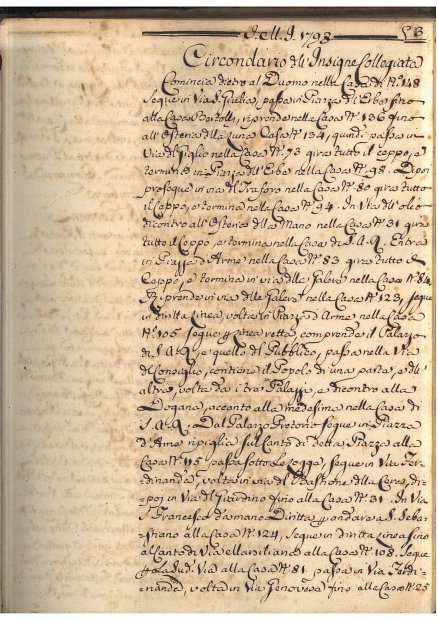 J. M. J. 1798 53
Circondario dell'Insigne Collegiata
Comincia dietro al Duomo nella Casa di N.° 148
Segue in Via S. Giulia, passa in Piazza dell'Erbe fino
alla Casa Bortolli, riprende nella Casa N.° 136 fino
all'Osteria della Luna Casa N.° 134, quindi passa in
Via del Giglio nella Casa N.° 73 gira tutto il ceppo, e
termina in Piazza dell'Erbe nella Casa N.° 98. Dipoi
prosegue in via del Traforo nella Casa N.° 80 gira tutto
il Ceppo, e termina nella Casa N.° 94. In Via dell'olio
dicontro all'Osteria della Mano nella Casa N.° 31 gira
tutto il Ceppo, e termina nella Casa di S. A. R. Entra
in Piazza d'Arme nella Casa N.° 83 gira tutto il
Ceppo, e termina in via delle Galere nella Casa N.° 84.
Riprende in via delle Galere nella Casa N.° 123, segue
in diritta linea, volta in Piazza d'Arme nella Casa
N.° 105 segue p linea retta, comprende il Palazzo
di S. A. R., e quello del Pubblico, passa nella Via
del Consiglio, contiene il Popolo di una parte, e dell'
altra, volta da i tre Palazzi, e dicontro alla
Dogana, accanto alla medesima nella Casa di
S. A. R. Dal Palazzo Pretorio segue in Piazza
d'Arme ripiglia sul Canto di detta Piazza alla
Casa N.° 115 passa sotto le Logge, segue in Via Fer-
dinanda, volta in via del Bastione della Cera, di-
poi in Via del Giardino fino alla Casa N.° 31. In Via
S. Francesco d'amano Diritta p andare a S. Seba-
stiano alla Casa N.° 124, segue in diritta linea fino
al Canto di Via della Rosciano alla Casa N.° 108. Segue
Via alla Casa N.° 81, passa in Via Ferdi-
nanda, volta in Via Genovese fino alla Casa N.° 25